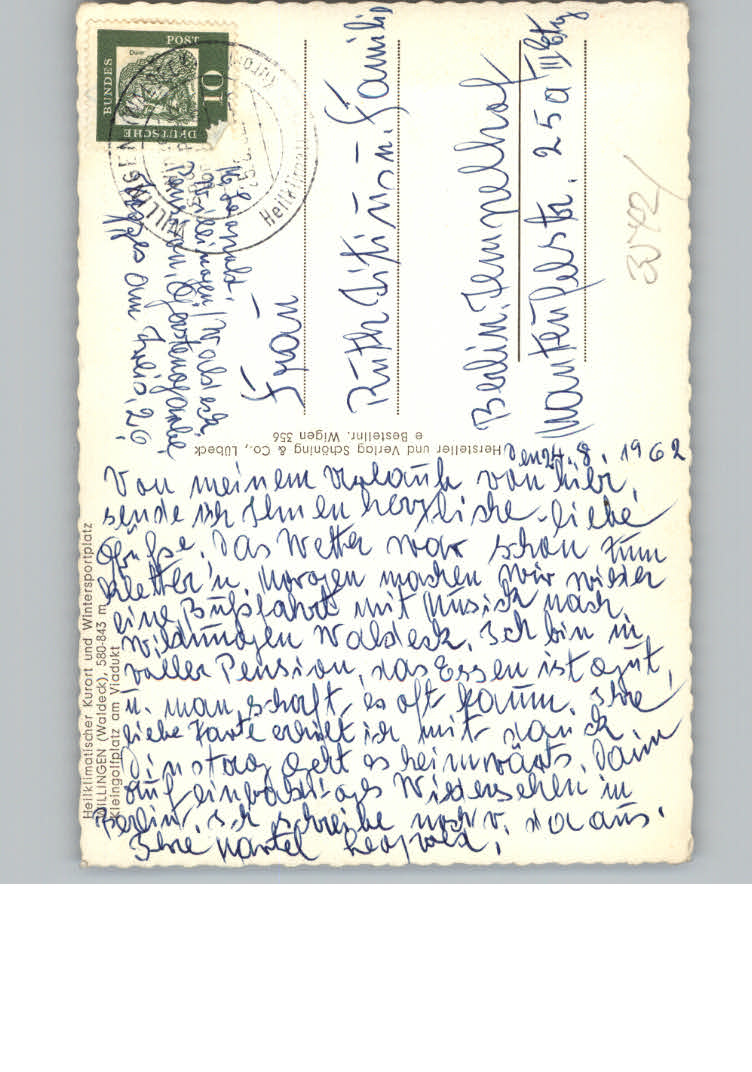 den 24. 8. 1962
Von meinem Urlaub von hier,
sende ich Ihnen herzliche liebe
Grüße. Das Wetter war schon zum
kletter'n. Morgen machen wir wieder
eine Bußfahrt mit Musick nach
Wildungen Waldeck. Ich bin in
voller Pension, das Essen ist gut,
u. man schaft es oft kaum. Ihre
liebe Karte erhielt ich mit danck
Dinstag geht es heimwärts. Dann
auf ein baldiges Wiedersehen in
Berlin. Ich schreibe noch v. da aus.
Ihre Leopold.
Heilklimatischer Kurort und Wintersportplatz
WILLINGEN (Waldeck), 580-843 m
Kleingolfplatz am Viadukt
Hersteller und Verlag Schöning & Co., Lübeck
e Bestellnr. Wigen 356
DEUTSCHE
BUNDES
POST
10
Dürer
WILLINGEN
Willingen / Waldeck
Pension
Frau
Ruth u. Familie
Berlin. Tempelhof
Manteufelstr. 25a III